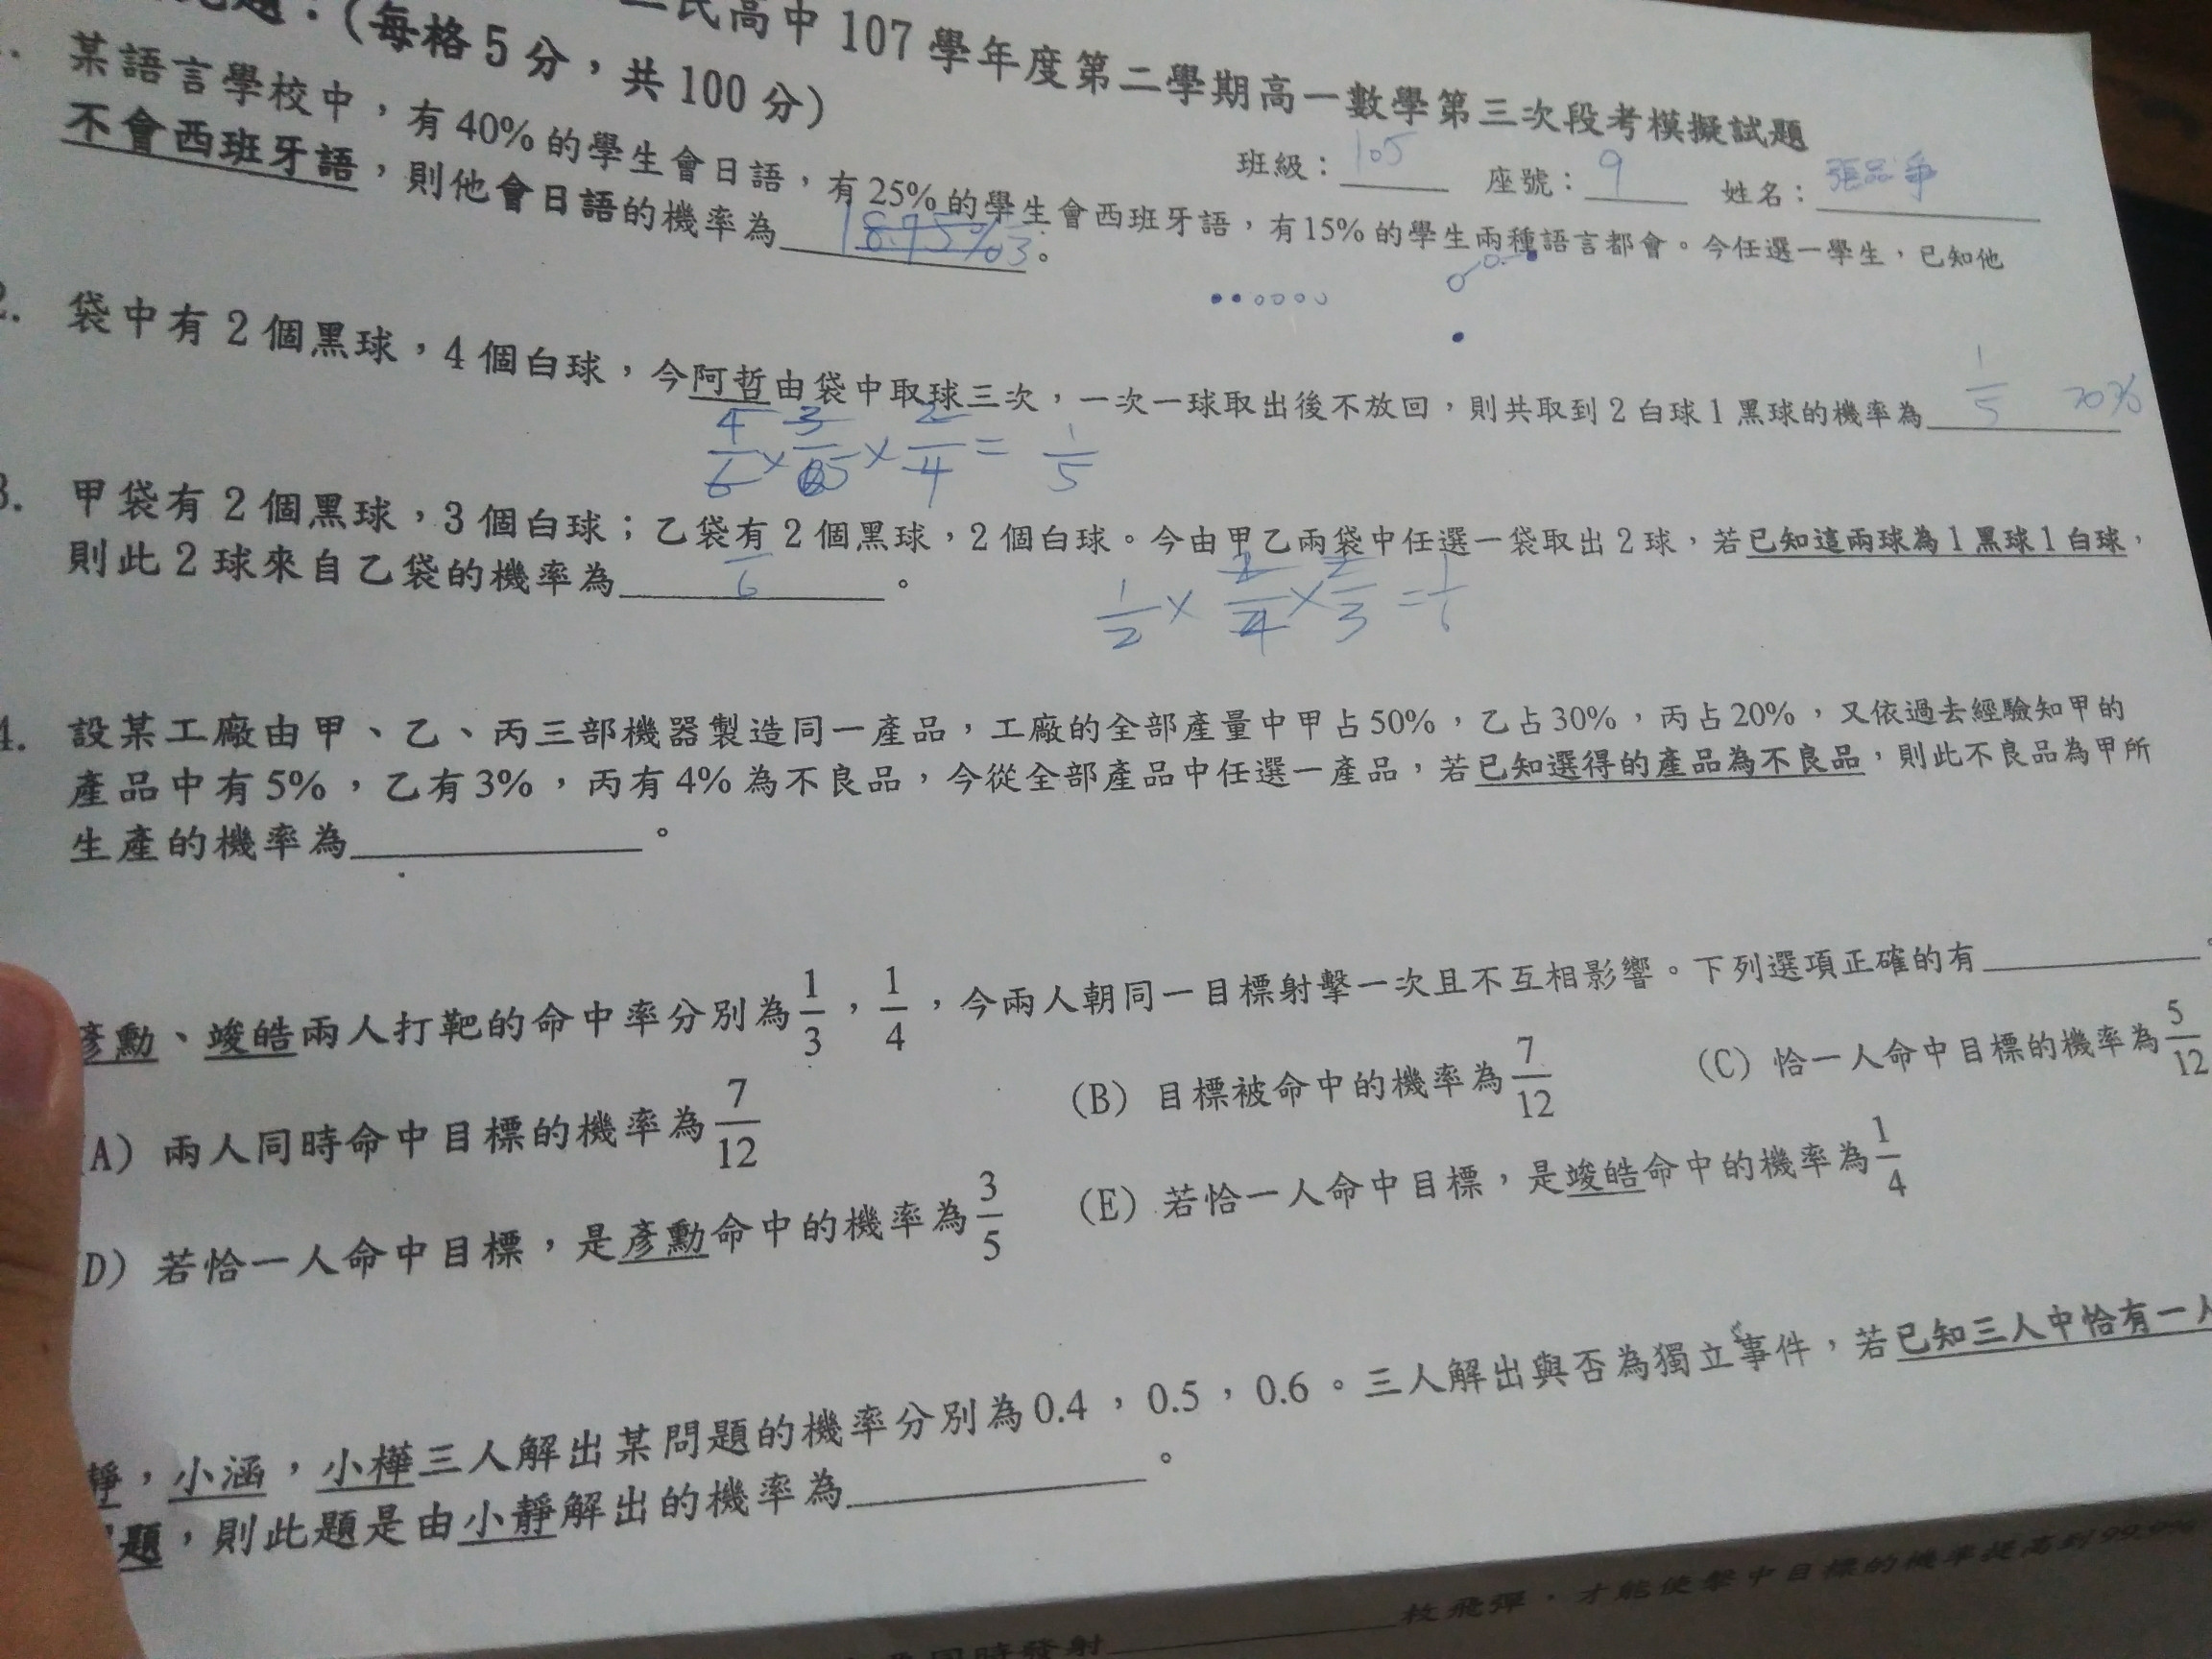 民高中 107 學年度第二學期高一數學第三次段考模擬試題
題：(每格 5 分，共 100 分)
班級：105 座號：9 姓名：張品
某語言學校中，有 40% 的學生會日語，有 25% 的學生會西班牙語，有 15% 的學生兩種語言都會。今任選一學生，已知他
不會西班牙語，則他會日語的機率為 18.75% 。
2. 袋中有 2 個黑球，4 個白球，今阿哲由袋中取球三次，一次一球取出後不放回，則共取到 2 白球 1 黑球的機率為 1/5 20%
4/6 × 3/5 × 2/4 = 1/5
3. 甲袋有 2 個黑球，3 個白球；乙袋有 2 個黑球，2 個白球。今由甲乙兩袋中任選一袋取出 2 球，若已知這兩球為 1 黑球 1 白球，
則此 2 球來自乙袋的機率為 1/6 。
1/2 × 2/4 × 2/3 = 1/6
4. 設某工廠由甲、乙、丙三部機器製造同一產品，工廠的全部產量中甲占 50%，乙占 30%，丙占 20%，又依過去經驗知甲的
產品中有 5%，乙有 3%，丙有 4% 為不良品，今從全部產品中任選一產品，若已知選得的產品為不良品，則此不良品為甲所
生產的機率為＿＿＿＿。
彥勳、竣皓兩人打靶的命中率分別為 1/3，1/4，今兩人朝同一目標射擊一次且不互相影響。下列選項正確的有＿＿＿＿。
(A) 兩人同時命中目標的機率為 7/12 (B) 目標被命中的機率為 7/12 (C) 恰一人命中目標的機率為 5/12
(D) 若恰一人命中目標，是彥勳命中的機率為 3/5 (E) 若恰一人命中目標，是竣皓命中的機率為 1/4
靜，小涵，小樺三人解出某問題的機率分別為 0.4，0.5，0.6。三人解出與否為獨立事件，若已知三人中恰有一人
題，則此題是由小靜解出的機率為＿＿＿＿。
同時發射＿＿＿＿枚飛彈，才能使擊中目標的機率提高到 99.9%